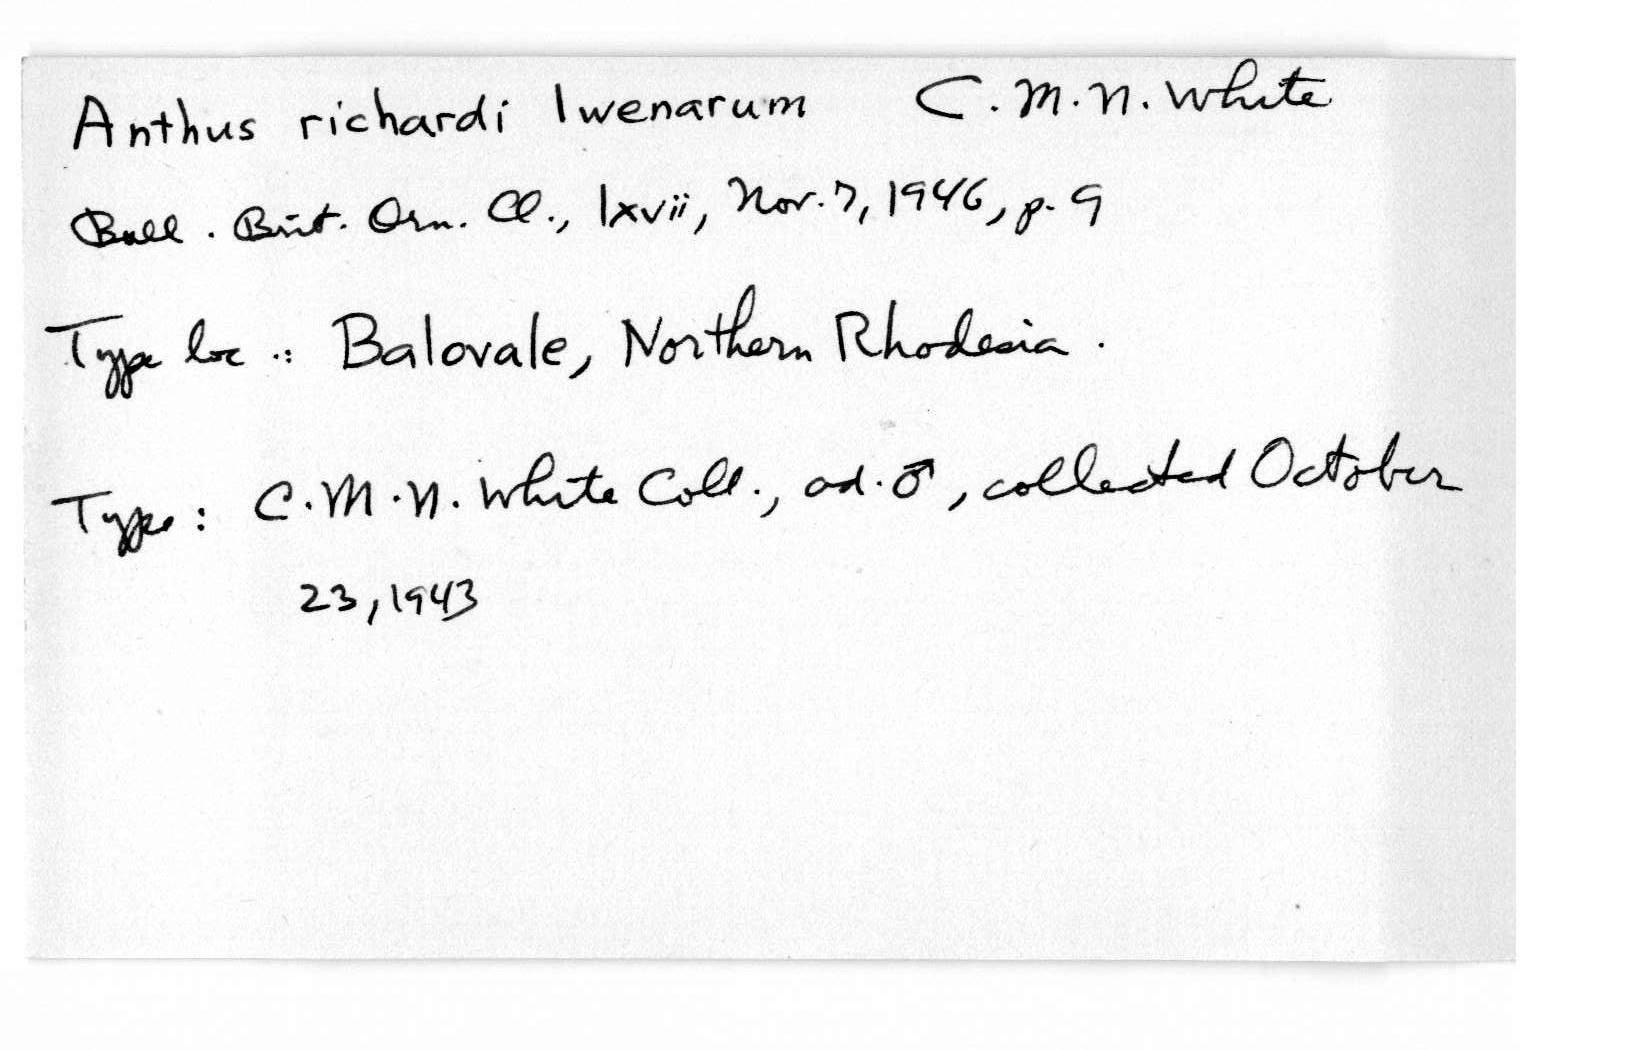 Anthus richardi lwenarum C.M.N. White
Bull. Brit. Orn. Cl., lxvii, Nov. 7, 1946, p. 9
Type loc.: Balovale, Northern Rhodesia.
Type: C.M.N. White Coll., ad. ♂, collected October
23, 1943